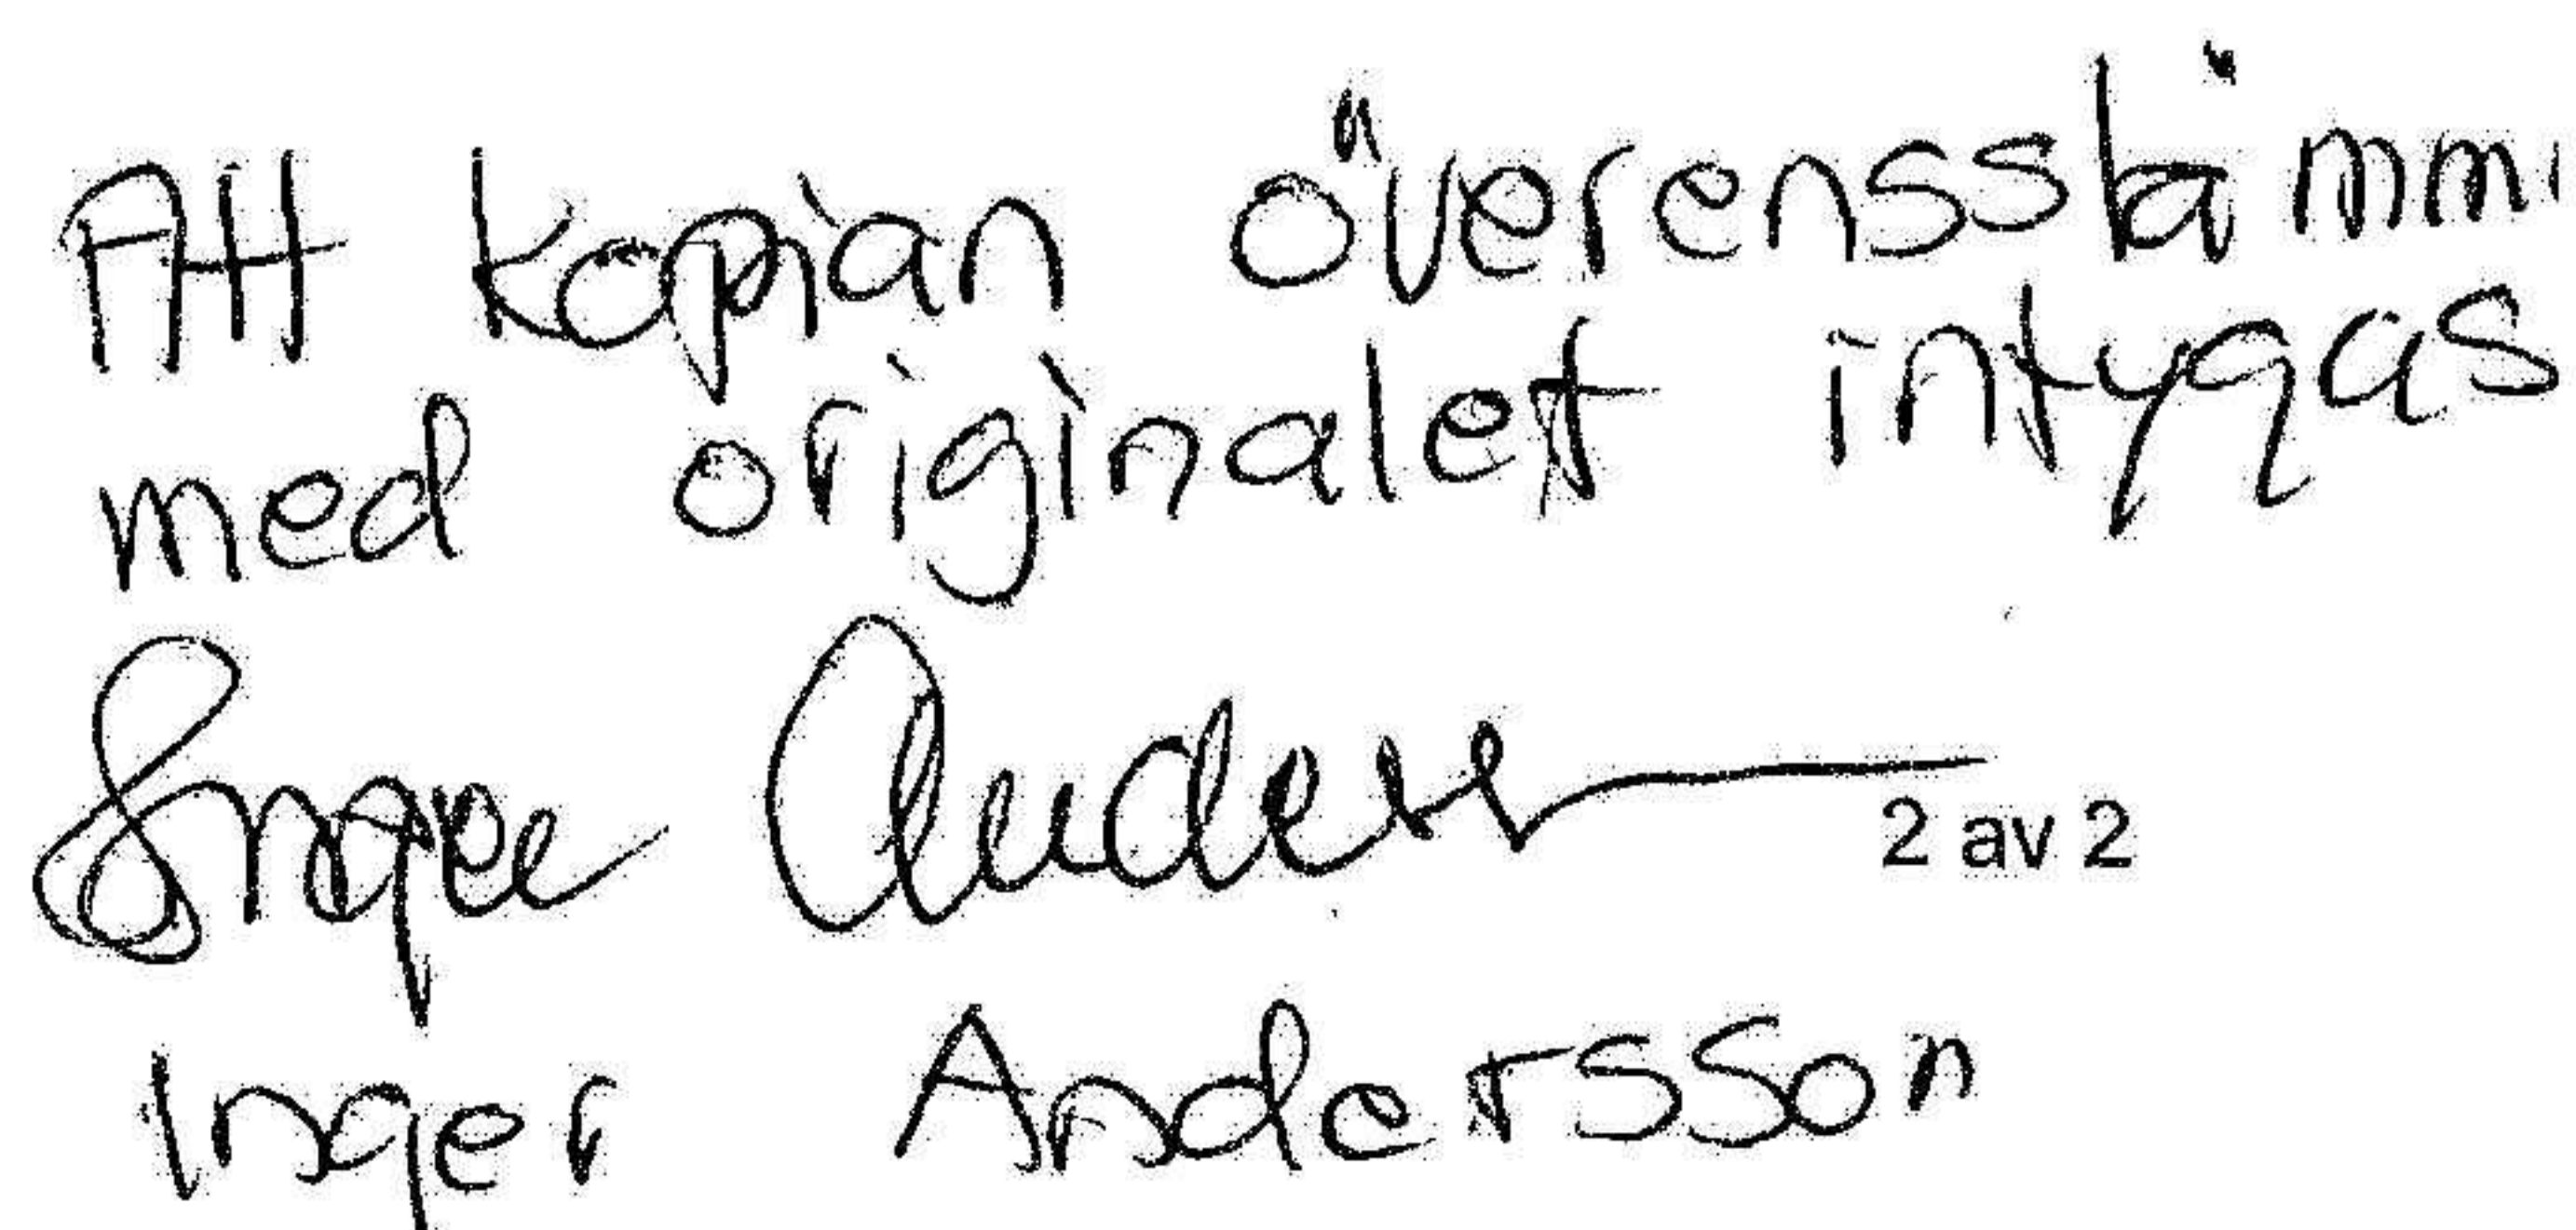 Att kopian överensstämm
med originalet intygas
Inger Anderss
2 av 2
Inger Andersson